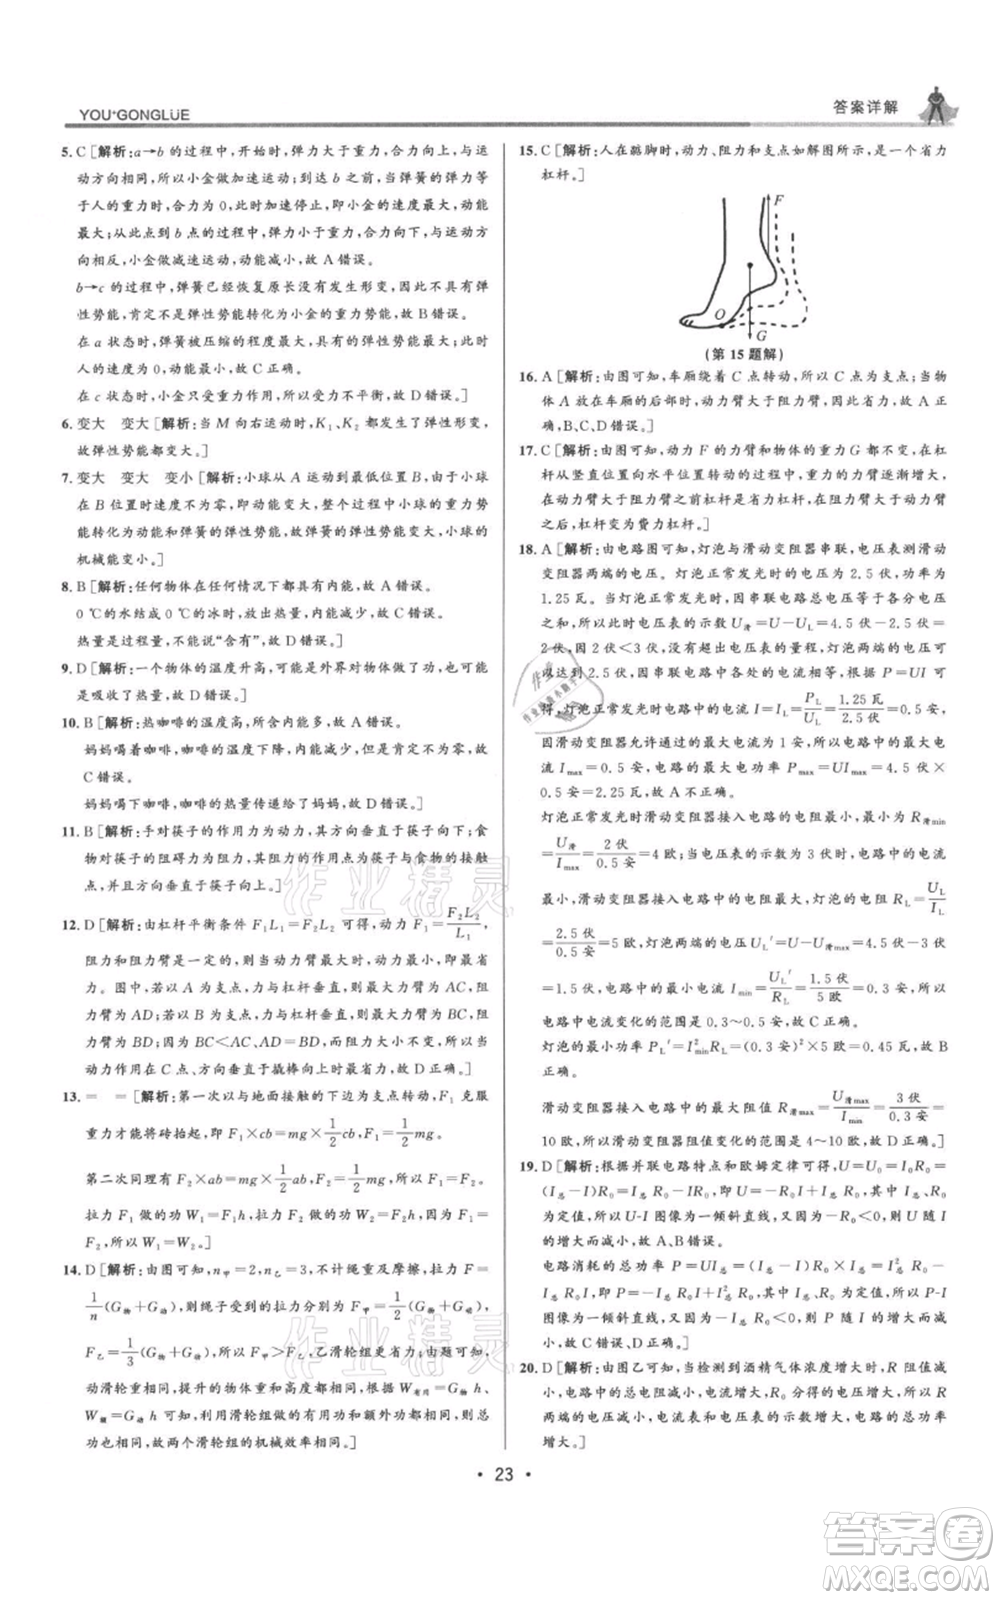 YOU+GONGLÜE
答案详解
5. C [解析:a→b 的过程中,开始时,弹力大于重力,合力向上,与运
动方向相同,所以小金做加速运动;当弹簧的弹力等
于人的重力时,合力为 0,即小金的速度最大,动能最
大;从此点到 b 点的过程中,弹力小于重力,合力向下,与运动方
向相反,小金做减速运动,动能减小,故 A 错误。
b→c 的过程中,弹簧已经恢复原长没有发生形变,不具有弹
性势能,肯定不是弹性势能转化为小金的重力势能,故 B 错误。
在 a 状态时,弹簧被压缩的程度最大,弹力最大,弹性势能最大,
人的速度为 0,动能为 0,故 C 正确。
在 c 状态时,小金只受重力作用,所以受力不平衡,故 D 错误。]
6. 变大 变大 [解析:当 M 向右运动时,K₁、K₂ 都发生了弹性形变,
故弹性势能都变大。]
7. 变大 变大 变小 [解析:小球从 A 运动到最低位置 B,由于小球
在 B 处的速度不为零,故动能变大,整个过程中小球的重力势
能转化为动能和弹簧的弹性势能,故弹簧的弹性势能变大,小球的
机械能变小。]
8. B [解析:任何物体在任何情况下都具有内能,故 A 错误。
0 ℃的水结成 0 ℃的冰时,放出热量,内能减少,故 C 错误。
热量是过程量,不能说“含有”,故 D 错误。]
9. D [解析:一个物体的温度升高,可能是外界对物体做了功,也可能
是吸收了热量,故 D 错误。]
10. B [解析:热咖啡的温度高,所含内能多,故 A 错误。
妈妈喝着咖啡,咖啡的温度下降,内能减少,但是内能不为零,故
C 错误。
妈妈喝下咖啡,咖啡的热量传递给了妈妈,故 D 错误。]
11. B [解析:手对筷子的作用力为动力,其方向垂直于筷子向下;食
物对筷子的阻碍力为阻力,其阻力的作用点为食物与筷子的接触
点,并且方向垂直于筷子向上。]
12. D [解析:由杠杆平衡条件 F₁L₁=F₂L₂ 可得,动力 F₁=F₂L₂/L₁,
阻力和阻力臂一定时,动力臂最大
力。图中,若以 A 为支点,力与杠杆垂直,最大的动力臂为 AC,阻
力臂为 AD;若以 B 为支点,力与杠杆垂直时,最大动力臂为 BC,
阻力臂为 BD。因为 BC<AC,而阻力大小不变,阻力臂 BD>
AD,所以在 C 点沿垂直于撬棒向上方向最省力,故 D 正确。]
13. = = [解析:第一次以与地面接触的下边为支点转动,F₁ 克服
重力才能将砖抬起,即 F₁×cb=mg×1/2cb,F₁=mg×1/2。
第二次同理有 F₂×ab=mg×1/2ab,F₂=mg×1/2。
拉力 F₁ 做的功 W₁=F₁h,拉力 F₂ 做的功 W₂=F₂h,因为 F₁=
F₂,所以 W₁=W₂。]
14. D [解析:由图可知,n甲=2,n乙=3,不计绳重及摩擦,拉力 F=
1/n(G物+G动),则绳子受到的拉力分别为 F甲=1/2(G物+G动),
F乙=1/3(G物+G动),所以 F甲>F乙,乙滑轮组更省力。由题意知,
动滑轮重相同,提升的物体重和高度相同,根据 W有用=G物h、
W额=G动h 可知,利用滑轮组做的有用功和额外功相同,总功相
同,故两个滑轮组的机械效率相同。]
15. C [解析:人在踮脚时,动力、阻力和支点如解图所示,是一个省力
杠杆。]
F
O
G
(第 15 题解)
16. A [解析:由图可知,车厢绕着 C 点转动,所以 C 点为支点;当物
体 A 放在车厢的后部时,动力臂大于阻力臂,因此省力,故 A 正
确,B、C、D 错误。]
17. C [解析:由图可知,动力 F 的力臂和物体的重力 G 都不变,在杠
杆从竖直位置向水平位置转动的过程中,重力的力臂逐渐增大,
在动力臂大于阻力臂之前杠杆为省力杠杆,在阻力臂大于动力臂
之后,杠杆变为费力杠杆。]
18. A [解析:由电路图可知,灯泡与滑动变阻器串联,电压表测滑动
变阻器两端的电压。灯泡正常发光时的电压为 2.5 伏,功率为
1.25 瓦。当灯泡正常发光时,因串联电路总电压等于各分电压
之和,所以此时电压表的示数 U滑=U-UL=4.5 伏-2.5 伏=
2 伏,因 2 伏<3 伏,没有超出电压表的量程,所以灯泡两端电压可
以达到 2.5 伏;因串联电路中各处的电流相等,所以根据 P=UI 可
得,灯泡正常发光时电路中的电流 I=IL=PL/UL=1.25 瓦/2.5 伏=0.5 安。
因滑动变阻器允许通过的最大电流为 1 安,所以,电路中的最大电
流 Imax=0.5 安,电路的最大电功率 Pmax=UImax=4.5 伏×
0.5 安=2.25 瓦,故 A 正确。
灯泡正常发光时滑动变阻器接入电路中的电阻最小,最小为 R滑min
=U滑/Imax=2 伏/0.5 安=4 欧;当电压表的示数为 3 伏时,电路中的电流
最小,滑动变阻器接入电路中的电阻最大,灯泡的电阻 RL=UL/IL
=2.5 伏/0.5 安=5 欧,灯泡两端的电压 UL′=U-U滑max=4.5 伏-3 伏
=1.5 伏,电路中的最小电流 Imin=UL′/RL=1.5 伏/5 欧=0.3 安,所以
电路中电流变化的范围是 0.3~0.5 安,故 C 错误。
灯泡的最小功率 PL′=I²minRL=(0.3 安)²×5 欧=0.45 瓦,故 B
错误。
滑动变阻器接入电路中的最大电阻值 R滑max=U滑max/Imin=3 伏/0.3 安=
10 欧,所以滑动变阻器阻值变化的范围是 4~10 欧,故 D 错误。]
19. D [解析:根据并联电路特点和欧姆定律可得,U=U₀=I₀R₀=
(I总-I)R₀=I总R₀-IR₀,即 U=I总R₀-IR₀,因为 I总、R₀ 均
为定值,所以 U-I 图像为一倾斜直线,又因为-R₀<0,故 U 随 I
的增大而减小,故 A、B 错误。
电路消耗的总功率 P=UI总=(I总-I)R₀I总=I总²R₀-
I总R₀I,即 P=I总²R₀-I总R₀I,因为 I总、R₀ 为定值,所以 P-I
图像为一倾斜直线,又因为-I总R₀<0,故 P 随 I 的增大而减小,
故 C 错误,D 正确。]
20. D [解析:由图乙可知,当检测到酒精气体浓度增大时,R 阻值减
小,总电阻减小,电路中的电流增大,R₀ 分得的电压增大,所以 R
两端的电压减小,电流表和电压表的示数变大,电路的总功率
增大。]
• 23 •
作业精灵
作业精灵
答案卷
MXQE.COM